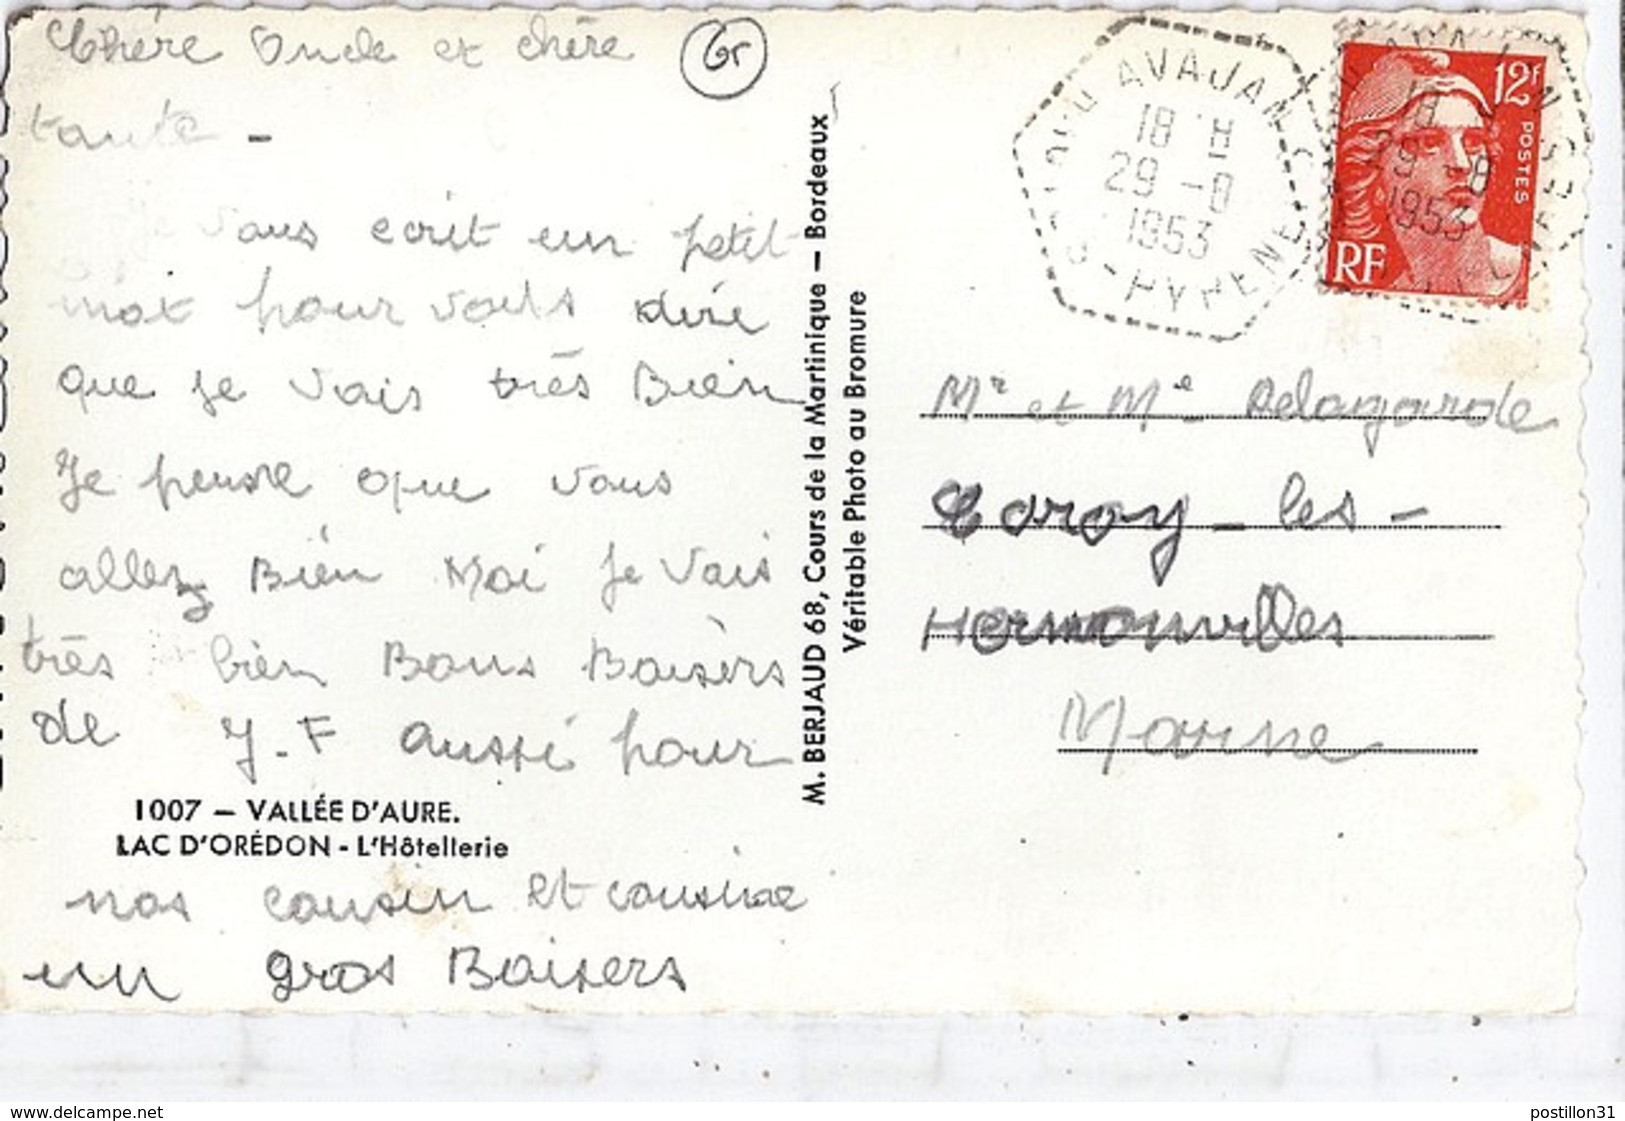 Chère Oncle et chère
Gr
tante -
Je Vous ecrit un petit
mot pour vous dire
que je vais très Bien
Je pense que vous
allez Bien Moi je Vais
très bien Bons Baisèrs
de J-F aussi pour
1007 – VALLÉE D'AURE.
LAC D'ORÉDON - L'Hôtellerie
nos cousin et cousine
un gros Baisers
M. BERJAUD 68, Cours de la Martinique – Bordeaux
Véritable Photo au Bromure
AVAJAN
18 H
29 -8
1953
PYRENEES
12F
POSTES
RF
18
29 -8
1953
Mr et Me Delagarde
Coroy - les -
Hermonvilles
Marne
www.delcampe.net
postillon31